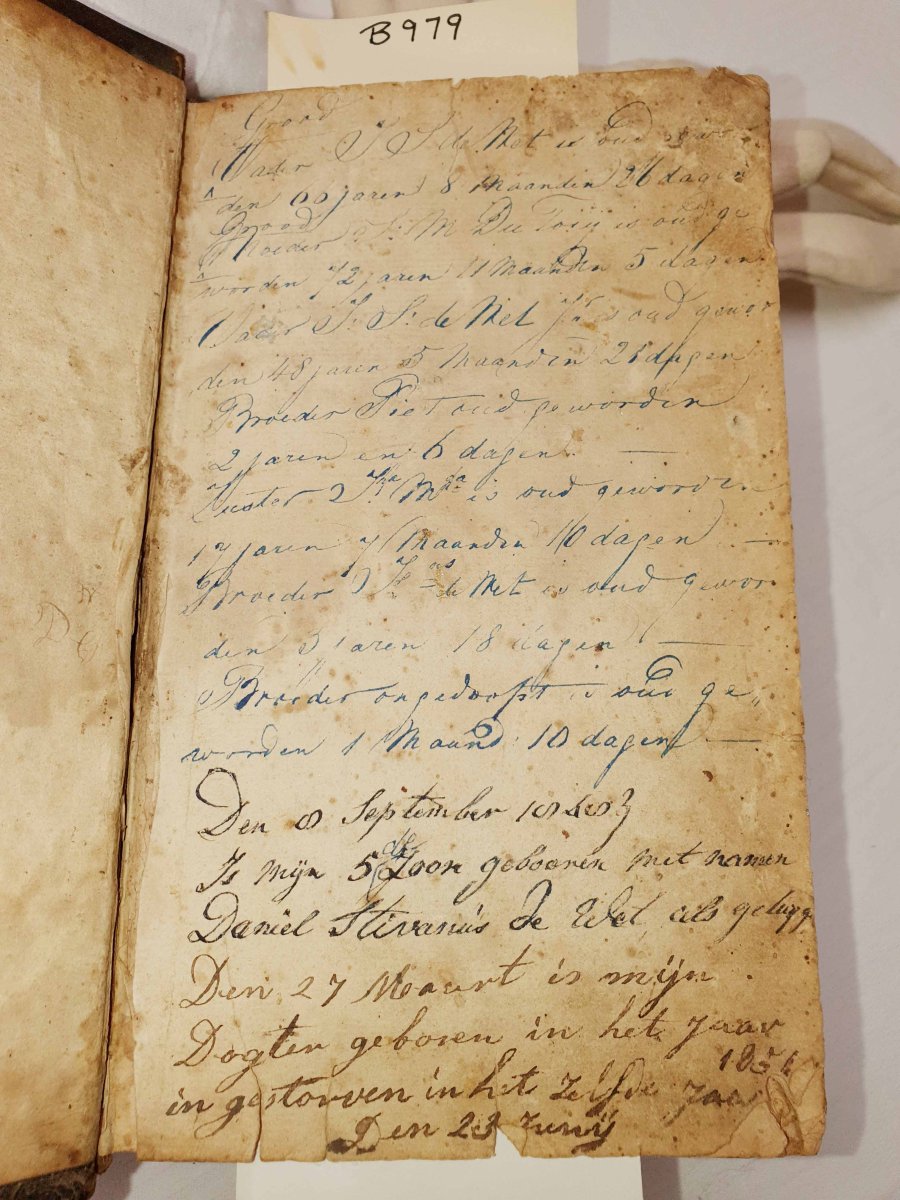 B979
Groot
Vader J S de Wet is oud gewor
den 66 jaren 8 Maanden 26 dagen
Groot
Moeder M Du Toij is oud ge
worden 72 jaren 11 Maanden 5 dagen
Vader J. S. de Wet is oud gewor
den 48 jaren 5 Maanden 21 dagen
Broeder Piet oud geworden
2 jaren en 6 dagen
Zuster is oud geworden
17 jaren 7 Maanden 10 dagen
Broeder de Wet is oud gewor
den 3 jaren 18 dagen
Broeder ongedoopt is oud ge„
worden 1 Maand 10 dagen
Den 8 September
Is mijn 5de Zoon gebooren met namen
Daniel Stivanus De Wet als getuyg
Den 27 Maart is mijn
Dogter geboren in het Jaar
in gestorven in het Zelfde Jaar
Den 23 Junij